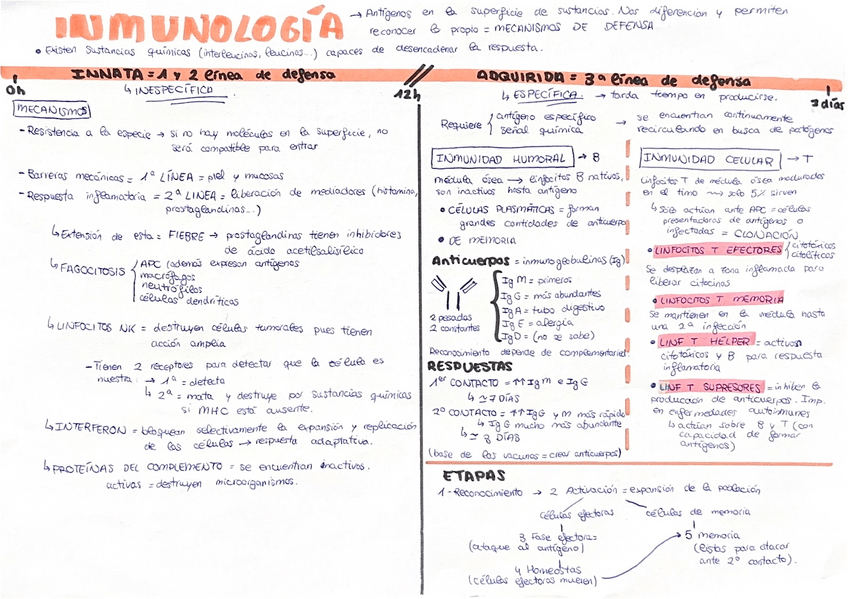 INMUNOLOGÍA
→ Antígenos en la superficie de sustancias. Nos diferencian y permiten
reconocer lo propio = MECANISMOS DE DEFENSA
• Existen sustancias químicas (interleucinas, leucinas...) capaces de desencadenar la respuesta.
INNATA = 1 y 2 línea de defensa
0h
12h
↳ INESPECÍFICA
MECANISMOS
- Resistencia a la especie → si no hay moléculas en la superficie, no
será compatible para entrar
- Barreras mecánicas = 1ª LÍNEA = piel y mucosas
- Respuesta inflamatoria = 2ª LINEA = liberación de mediadores (histamina,
prostaglandinas...)
↳ Extensión de esta = FIEBRE → prostaglandinas tienen inhibidores
de ácido acetilsalisílico
↳ FAGOCITOSIS { APC (además expresan antígenos
macrófagos
neutrófilos
células dendríticas
↳ LINFOCITOS NK = destruyen células tumorales pues tienen
acción amplia
- Tienen 2 receptores para detectar que la célula es
nuestra: → 1º = detecta
↳ 2º = mata y destruye por sustancias químicas
si MHC está ausente.
↳ INTERFERON = bloquean selectivamente la expansión y replicación
de las células → respuesta adaptativa.
↳ PROTEÍNAS DEL COMPLEMENTO = se encuentran inactivas.
activas = destruyen microorganismos.
ADQUIRIDA = 3ª línea de defensa
3 días
↳ ESPECÍFICA → tarda tiempo en producirse.
Requiere { antígeno específico
señal química
→ se encuentran continuamente
recirculando en busca de patógenos
INMUNIDAD HUMORAL → B
médula ósea → linfocitos B nativos,
son inactivos hasta antígeno
• CÉLULAS PLASMÁTICAS = forman
grandes cantidades de anticuerpo
• DE MEMORIA
Anticuerpos = inmunogeobulinas (Ig)
2 pesadas
2 constantes
{ Ig M = primeros
Ig G = más abundantes
Ig A = tubo digestivo
Ig E = alergia
Ig D = (no se sabe)
Reconocimiento depende de complementarie
RESPUESTAS
1er CONTACTO = ↑↑ Ig M e Ig G
↳ ≃ 7 DÍAS
2º CONTACTO = ↑↑ Ig G y M más rápido
↳ Ig G mucho más abundante
↳ ≃ 3 DÍAS
(base de las vacunas = crear anticuerpos)
INMUNIDAD CELULAR → T
Linfocitos T de médula ósea madurados
en el timo → solo 5% sirven
↳ Sólo actúan ante APC = células
presentadoras de antígenos o
infectadas = CLONACIÓN
• LINFOCITOS T EFECTORES { citotóxicos
citolíticos
Se desplazan a zona inflamada para
liberar citocinas
• LINFOCITOS T MEMORIA
Se mantienen en la médula hasta
una 2ª infección
• LINF T HELPER = activan
citotóxicos y B para respuesta
inflamatoria
• LINF T SUPRESORES = inhiben la
producción de anticuerpos. Imp.
en enfermedades autoinmunes
↳ actúan sobre B y T (con
capacidad de formar
antígenos)
ETAPAS
1 - Reconocimiento → 2 Activación = expansión de la población
células efectoras
células de memoria
3 Fase efectora =
(ataque al antígeno)
4 Homeostas
(células efectoras mueren)
5 memoria
(listas para atacar
ante 2º contacto).